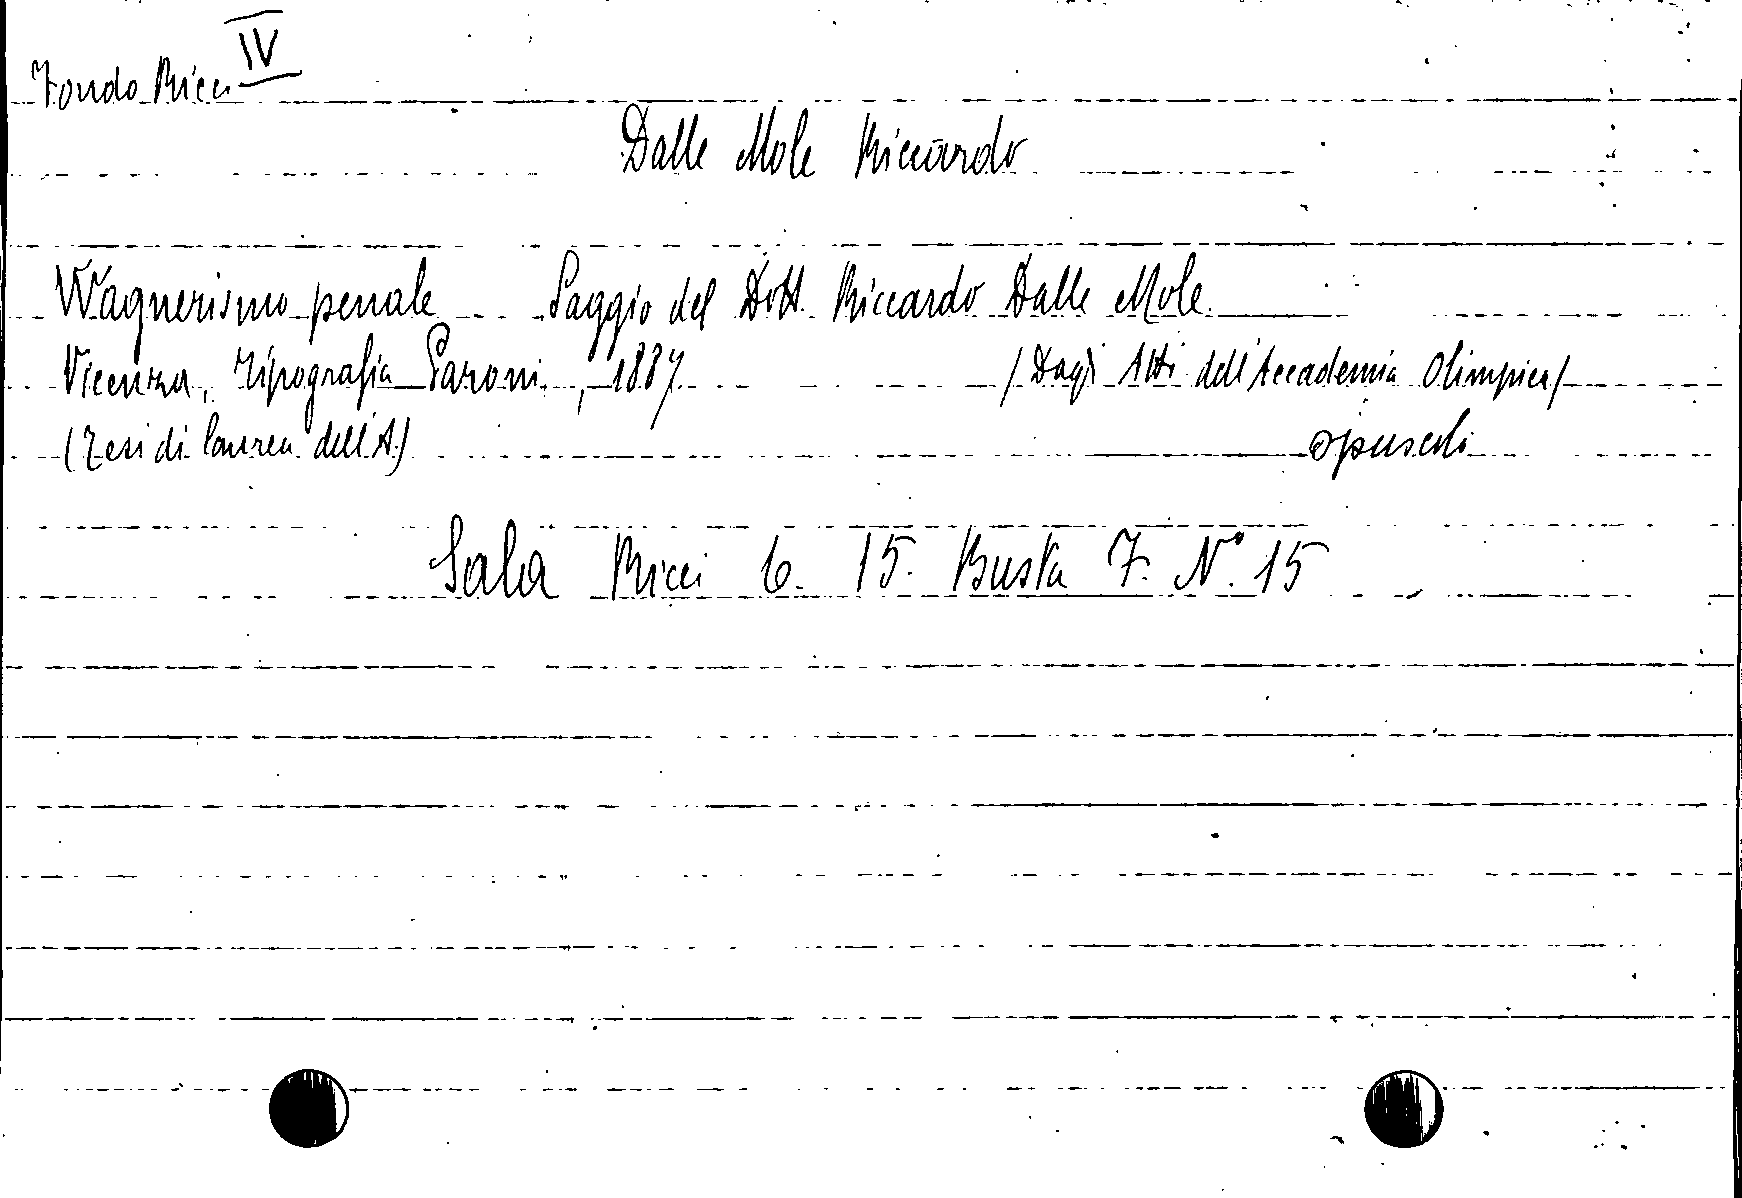 Fondo Ricci IV
Dalle Mole Riccardo
Wagnerismo penale Saggio del Dott. Riccardo Dalle Mole
Vicenza, Tipografia Paroni, 1887 / Dagli Atti dell'Accademia Olimpica /
(Tesi di laurea dell'A.) opuscoli
Sala Ricci 6. 15. Busta 7. N° 15